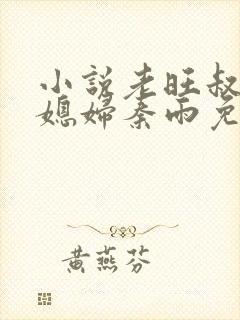 小说老旺叔
媳妇秦雨免
黄燕芬